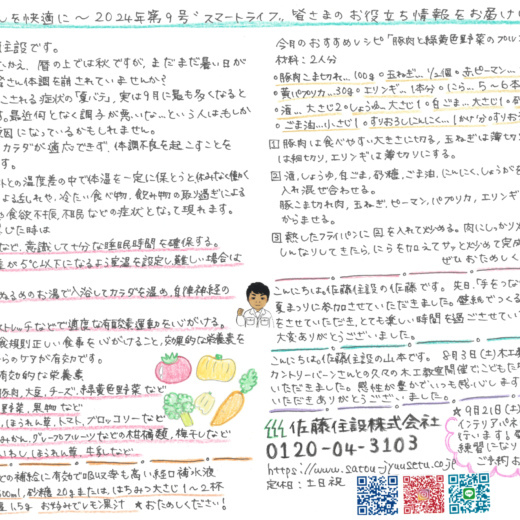 しを快適に〜2024年第9号 スマートライフ、皆さまのお役立ち情報をお届け
住設です。
暦の上では秋ですが、まだまだ暑い日が
体調を崩されていませんか？
こされる症状の「夏バテ」、実は9月に最も多くなると
最近何となく調子が悪いな…という人はもしか
原因になっているかもしれません。
カラダが適応できず、体調不良を起こすことを
す。
との温度差の中で体温を一定に保とうと休みなく働く
よる乱れや、冷たい食べ物、飲み物の取り過ぎによる
や食欲不振、不眠などの症状となって現れます。
じた時は
など、意識して十分な睡眠時間を確保する。
差が5℃以内になるよう室温を設定し、難しい場合は
ぬるめのお湯で入浴してカラダを温め、自律神経の
ストレッチなどで適度な有酸素運動を心がける。
食規則正しい食事を心がけること、効果的な栄養素を
からのケアが有効です。
有効的な栄養素
豚肉、大豆、チーズ、緑黄色野菜など
野菜、果物など
ほうれん草、トマト、ブロッコリーなど
みかん、グレープフルーツなどの柑橘類、梅干しなど
いわし、ほうれん草、牛乳など
の補給に有効で吸収率も高い経口補水液
500ml、砂糖20gまたは、はちみつ大さじ1〜2杯
塩1.5g お好みでレモン果汁 ★おためしください！
今月のおすすめレシピ「豚肉と緑黄色野菜のプルコ
材料：2人分
・豚肉こま切れ…100g・玉ねぎ…1/2個・赤ピーマン…
・黄パプリカ…30g・エリンギ…1本分・にら…5〜6本
・酒…大さじ2・しょうゆ…大さじ1・白ごま…大さじ1・砂
・ごま油…小さじ1・すりおろしにんにく…1かけ分・すりおろ
1 豚肉は食べやすい大きさに切る、玉ねぎは薄切
は細切り、エリンギは薄切りにする。
2 酒、しょうゆ、白ごま、砂糖、ごま油、にんにく、しょうがを
入れ混ぜ合わせる。
豚こま切れ肉、玉ねぎ、ピーマン、パプリカ、エリンギ
からませる。
3 熱したフライパンに2を入れて炒める。肉にしっかり火
しんなりしてきたら、にらを加えてサッと炒めて完成
ぜひおためしく
こんにちは、佐藤住設の佐藤です。先日、「手をつな
夏まつりに参加させていただきました。壁紙でつくる
をさせていただき、とても楽しい時間を過ごさせてい
大変ありがとうございました。
こんにちは、佐藤住設の山本です。8月3日(土)木工教
カントリーバーンさんとの久々の木工教室開催でこどもた
いただきました。感性が豊かでいつも感心します
いただきありがとうございました。
佐藤住設株式会社
0120-04-3103
https://www.satou-jyuusetu.co.j
定休日：土日祝
★9月21日(土)
インテリアパネ
行います。
練習になり
ご予約お